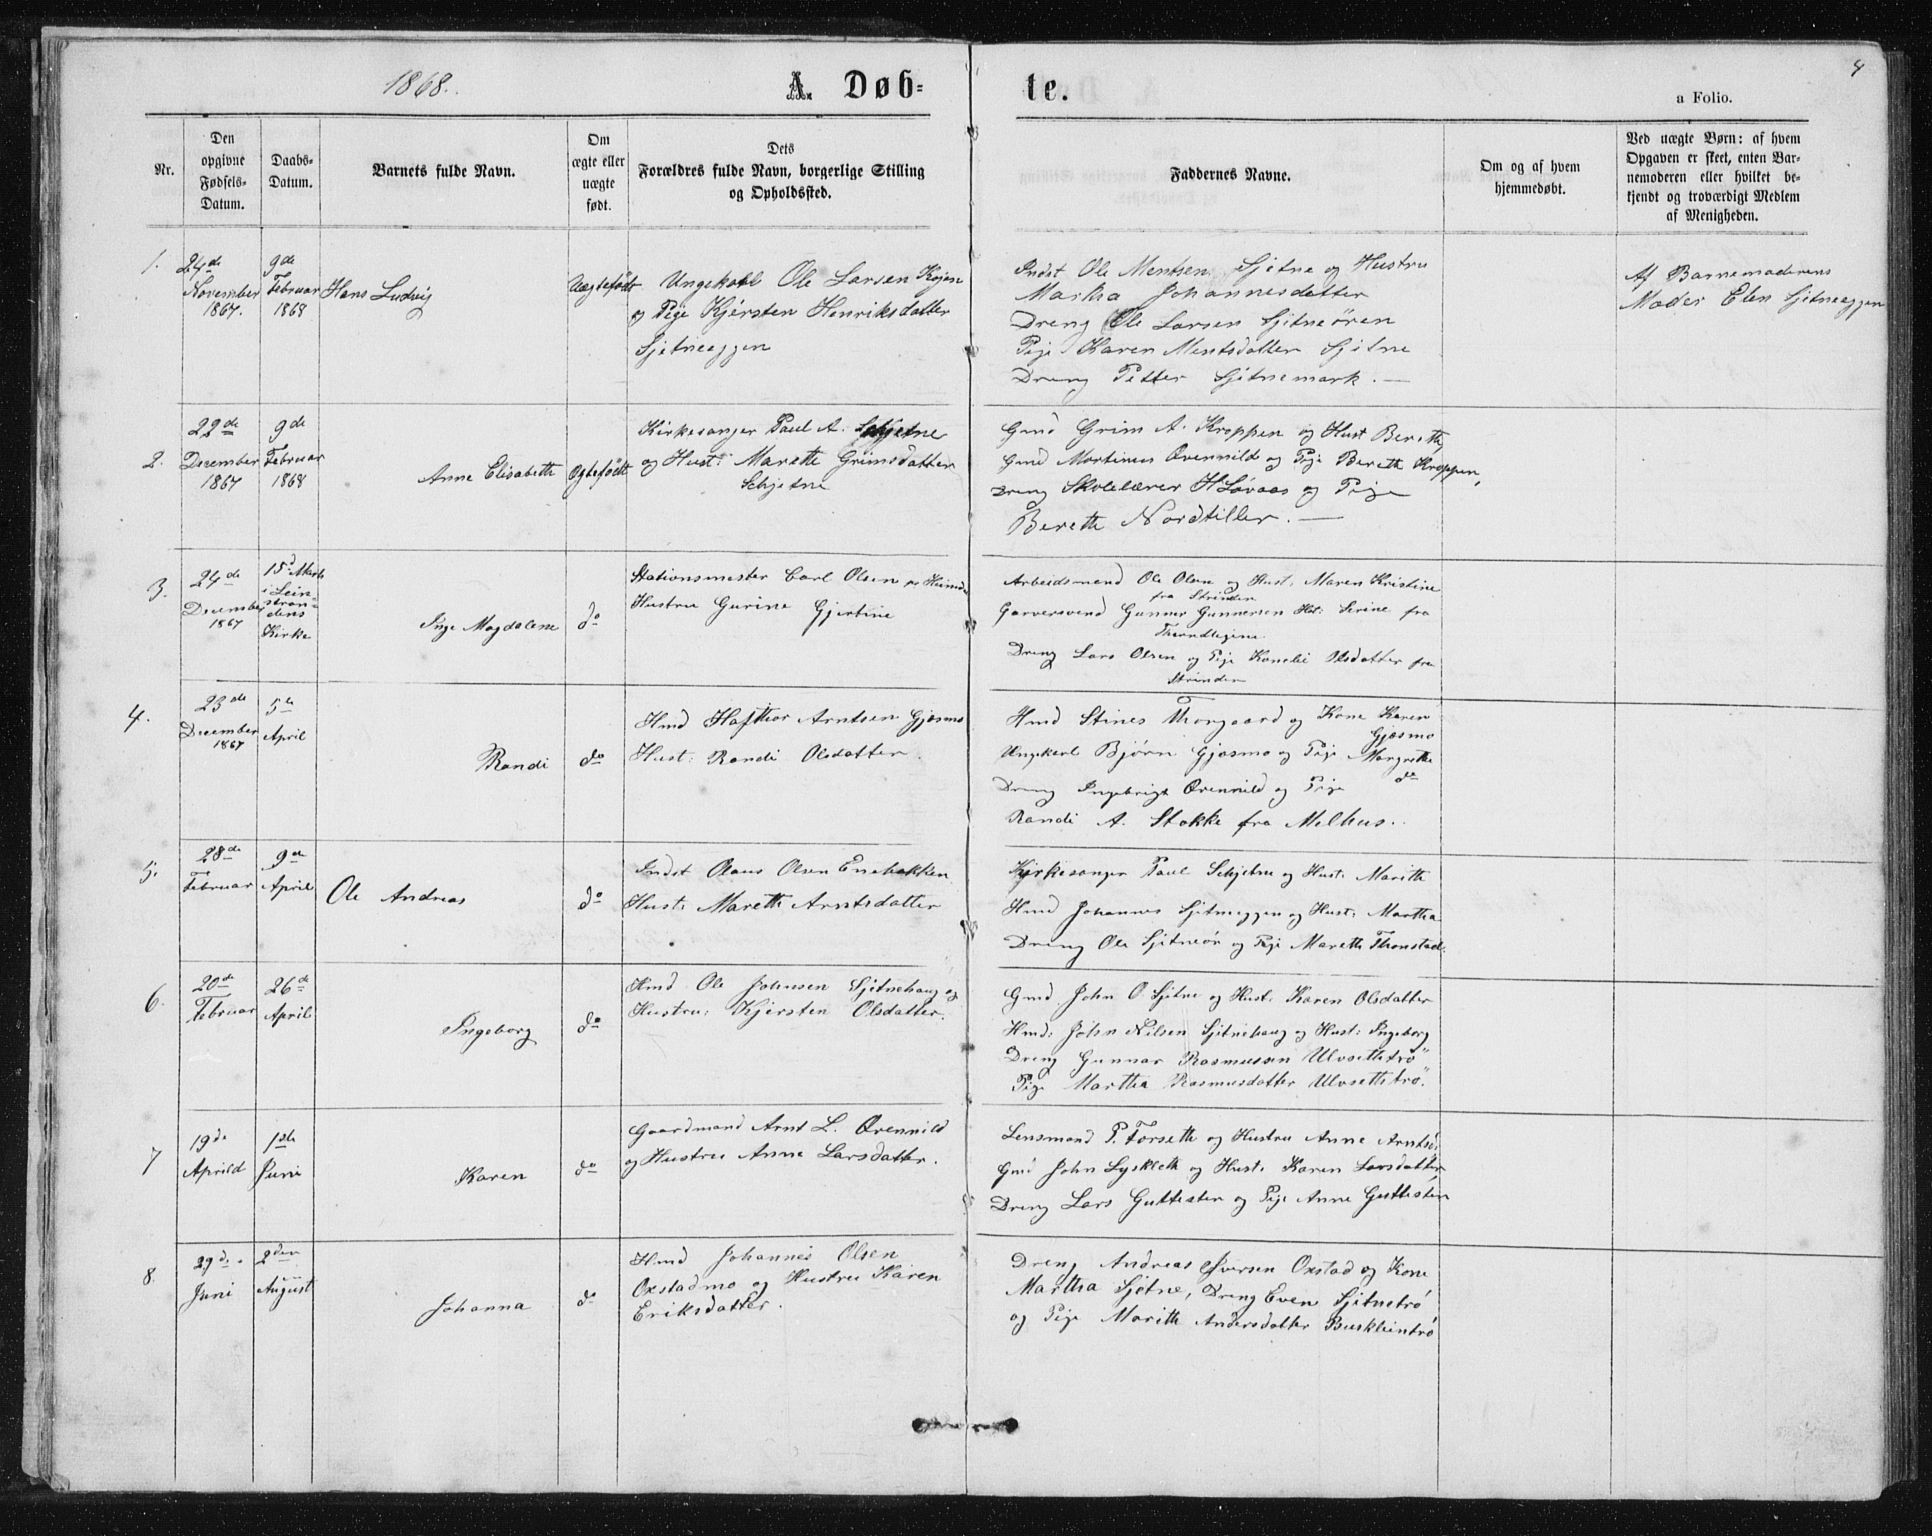 1868.
A. Døb-
te.
4
a Folio.
Nr.
Den
opgivne
Fødsels-
Datum.
Daabs-
Datum.
Barnets fulde Navn.
Om
ægte eller
uægte
født.
Dets
Forældres fulde Navn, borgerlige Stilling
og Opholdssted.
Faddernes Navne.
Om og af hvem
hjemmedøbt.
Ved uægte Børn: af hvem
Opgaven er skeet, enten Bar-
nemoderen eller hvilket be-
kjendt og troværdigt Medlem
af Menigheden.
1.
24de
November
1867.
9de
Februar
1868
Hans Ludvig
Uægtefødt
Ungekarl Ole Larsen Kojen
og Pige Kjersten Henriksdatter
Sjetneeggen
Indst Ole Mentsen Sjetne og Hustru
Martha Johannesdatter
Dreng Ole Larsen Sjitneören
Pige Karen Mentsdatter Sjitne
Dreng Petter Sjitnemark. —
Af Barnemoderens
Moder Elen Sjitneeggen
2.
22de
December
1867
9de
Februar
1868
Anne Elisabeth
Ægtefödt
Kirkesanger Paul A. Schjetne
og Hust: Marette Grimsdatter
Schjetne
Gmd Grim A. Kroppen og Hust Berette,
Gmd Martinus Övennild og Pige Bereth Kroppen,
Dreng Skolelærer H Løvaas og Pige
Bereth Nordtiller. —
3.
24de
December
1867
15d Marts
i Lein-
stran-
dens
Kirke
Inge Magdalene
do
Stationsmester Carl Olsen
Hustru Gurine Gjertine
Arbeidsmand Ole Olsen og Hust: Maren Kristine
fra Strinden
Garversvend Gunner Gunnersen Hst: Serine fra
Dreng Lars Olsen og Pige Olsdatter fra
Strinden
4.
23de
December
1867
5te
April
Randi
do
Hmd Hafthor Arntsen Gjösmo
Hust: Randi Olsdatter.
Hmd Stines Thorgaard og Kone Karen
Gjösmo
Ungekarl Björn Gjösmo og Pige Margrethe
do
Dreng Ingebrigt Övennild og Pige
Randi A. Stokke fra Melhus.
5.
28de
Februar
9de
April
Ole Andreas
do
Indst Olaus Olsen Enebakken
Hust: Mareth Arntsdatter
Kirkesanger Paul Schjetne og Hust: Marith
Hmd Johannes Sjitneeggen og Hust: Martha
Dreng Ole Sjitneör og Pige Mareth Thonstad.
6.
20de
Februar
26de
April
Ingeborg
do
Hmd Ole Johnsen Sjitnehaug og
Hustru: Kjersten Olsdatter.
Gmd John O Sjitne og Hust: Karen Olsdatter
Hmd: John Nilsen Sjitnehaug og Hust: Ingeborg
Dreng Gunnar Rasmussen Ulvsettetrö
Pige Martha Rasmusdatter Ulvsettetrö.
7
19de
Aprild
1ste
Juni
Karen
do
Gaardmand Arnt L. Övennild
og Hustru Anne Larsdatter.
Lensmand P. Forseth og Hustru Anne Arntsd:
Gmd John Lyskleth og Hust: Karen Larsdatter
Dreng Lars Guttesten og Pige Anne Guttesten
8.
29de
Juni
2den
August
Johanna
do
Hmd Johannes Olsen
Oxstadmo og Hustru Karen
Eriksdatter.
Dreng Andreas Iversen Oxstad og Kone
Martha Sjetne, Dreng Even Sjitnetrö
og Pige Marith Andersdatter Buskleintrö